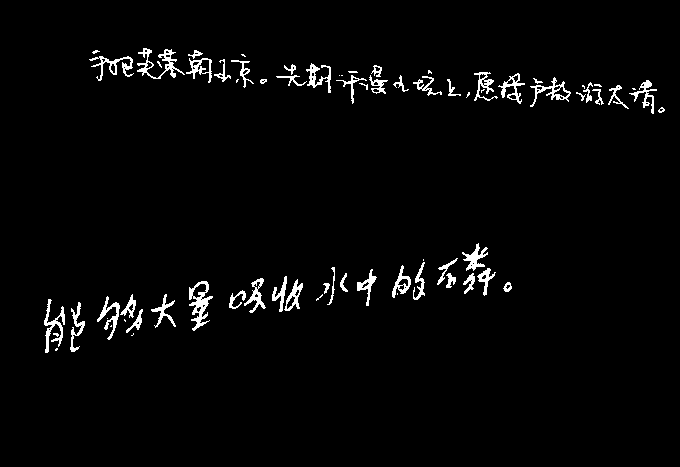 手把芙蓉朝玉京。先期汗漫九垓上,愿接卢敖游太清。
能够大量吸收水中的磷。